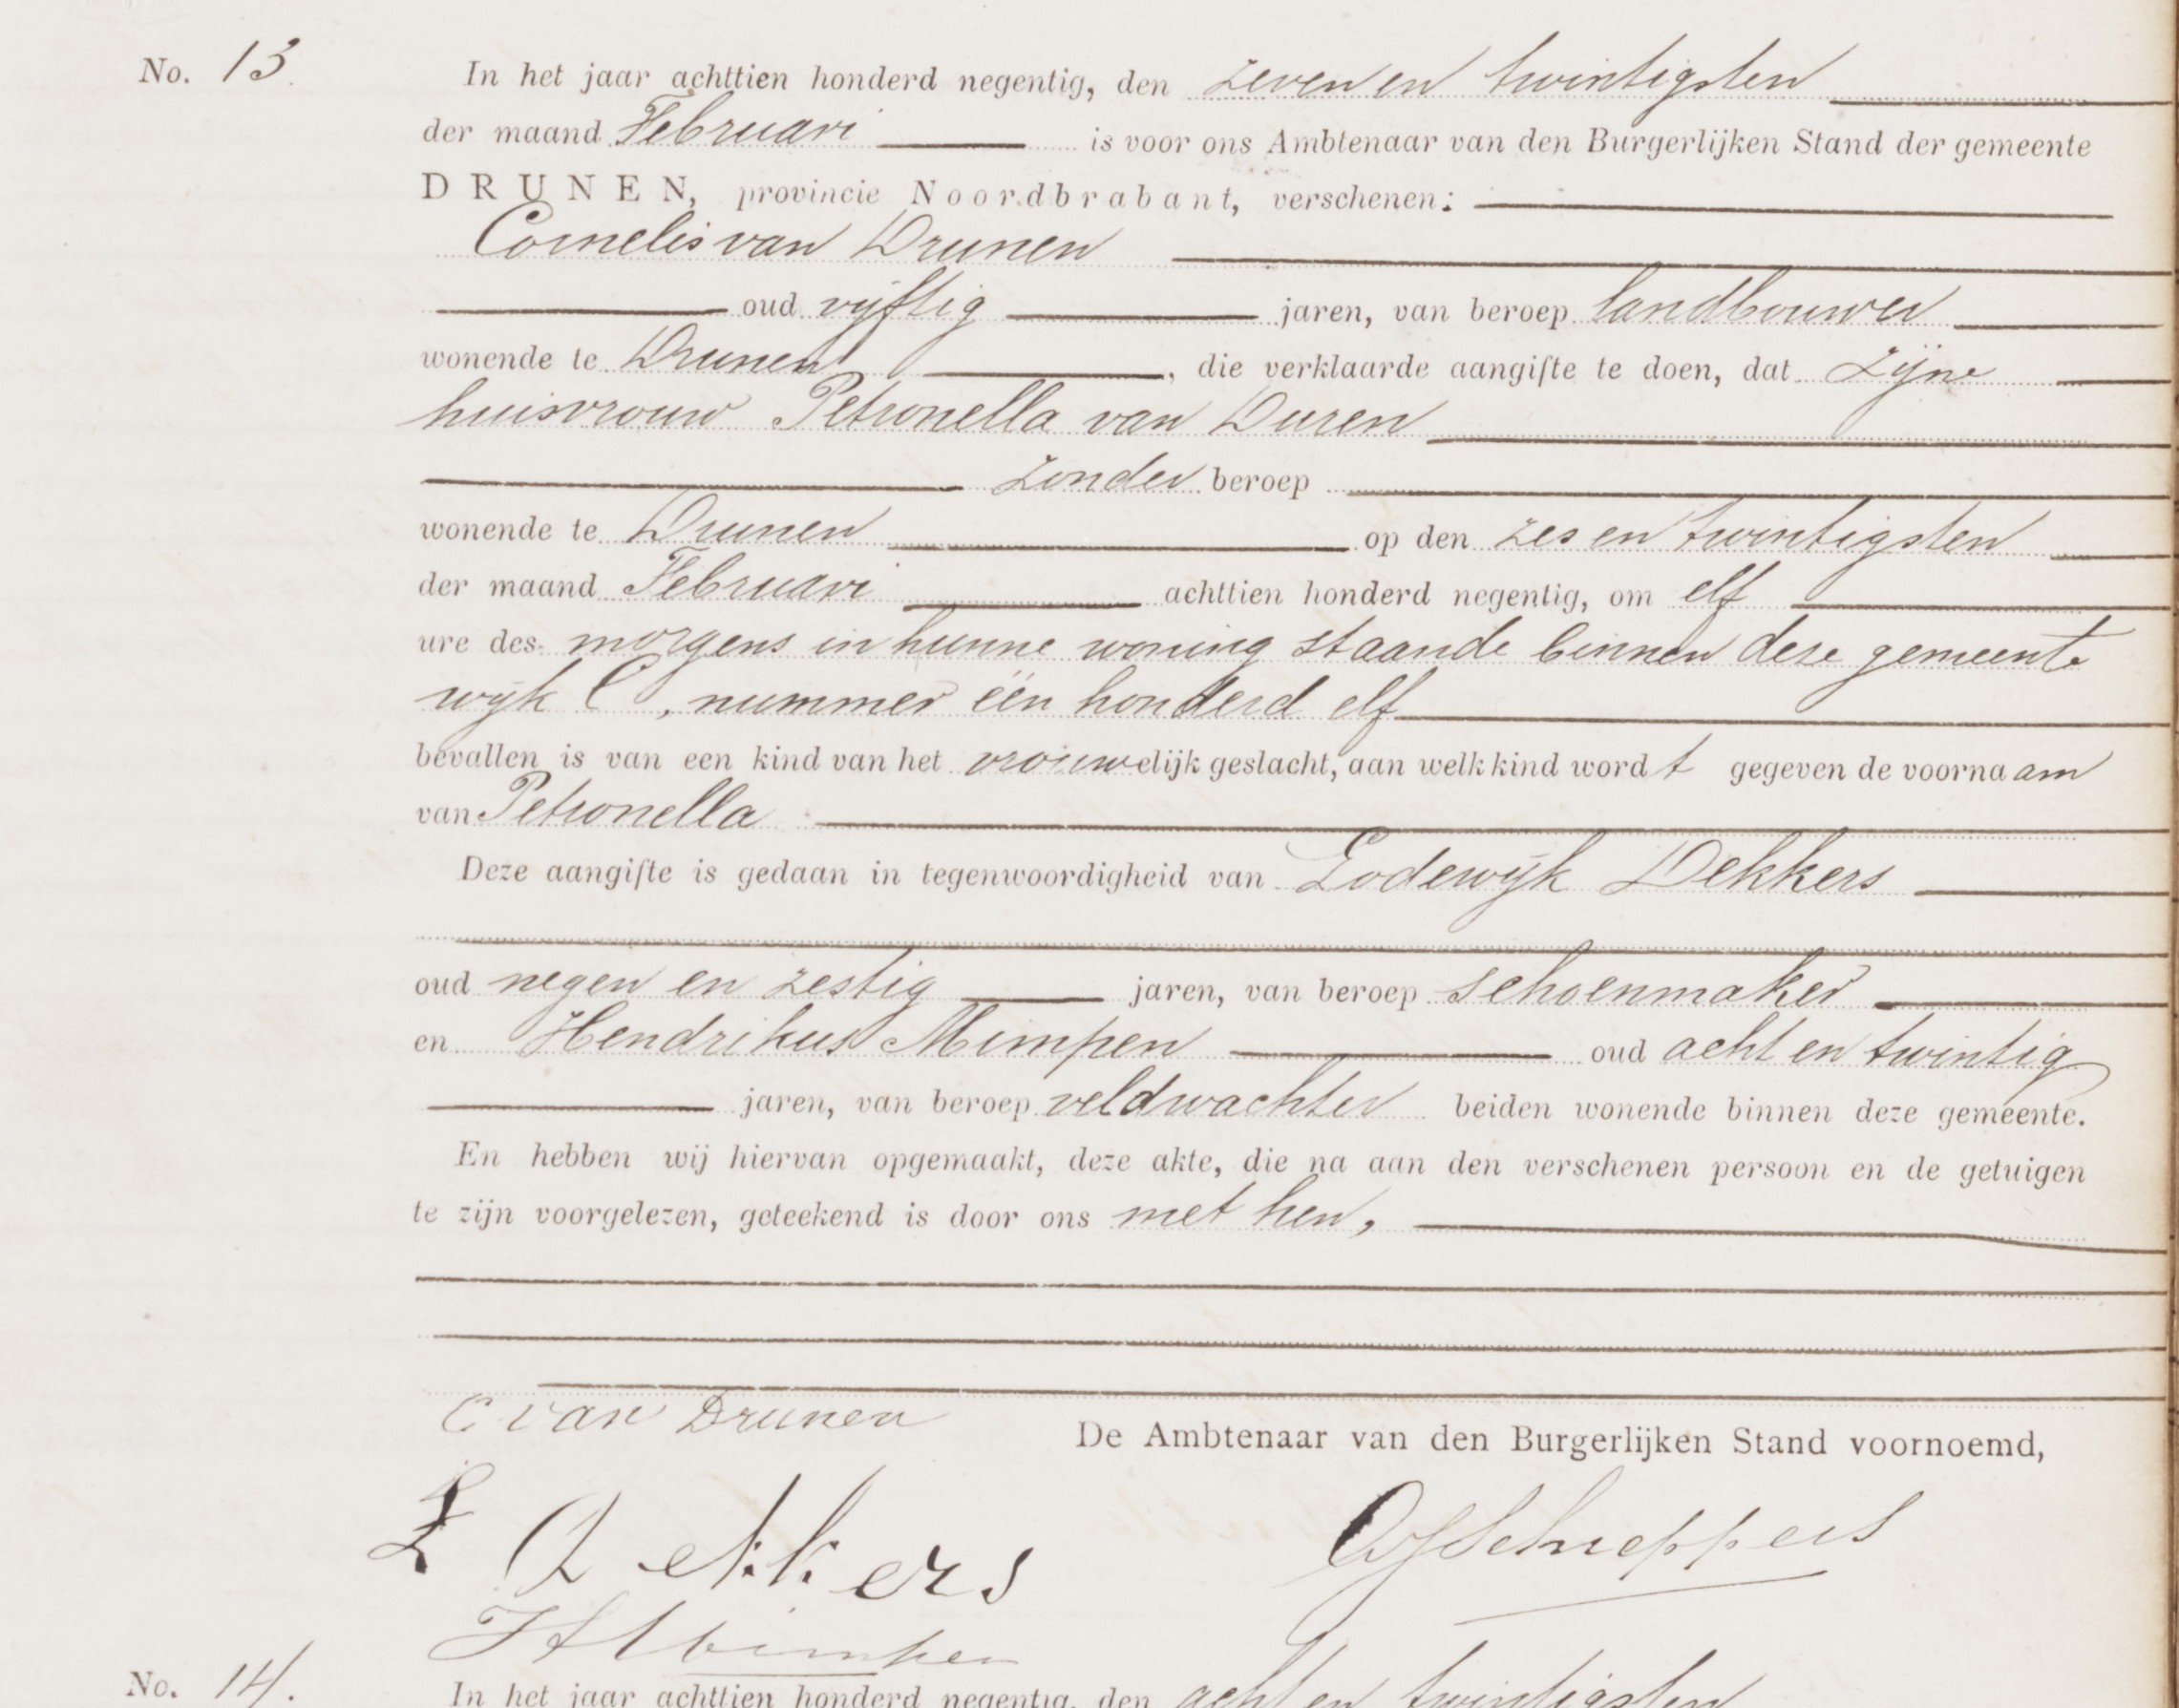 No. 13. In het jaar achttien honderd negentig, den zeven en twintigsten
der maand Februari is voor ons Ambtenaar van den Burgerlijken Stand der gemeente
DRUNEN, provincie Noordbrabant, verschenen:
Cornelis van Drunen
oud vijftig jaren, van beroep landbouwer
wonende te Drunen, die verklaarde aangifte te doen, dat zijne
huisvrouw Petronella van Duren
zonder beroep
wonende te Drunen op den zes en twintigsten
der maand Februari achttien honderd negentig, om elf
ure des morgens in hunne woning staande binnen deze gemeente
wijk C, nummer één honderd elf
bevallen is van een kind van het vrouwelijk geslacht, aan welk kind wordt gegeven de voornaam
van Petronella
Deze aangifte is gedaan in tegenwoordigheid van Lodewijk Dekkers
oud negen en zestig jaren, van beroep schoenmaker
en Hendrikus Mimpen oud acht en twintig
jaren, van beroep veldwachter beiden wonende binnen deze gemeente.
En hebben wij hiervan opgemaakt, deze akte, die na aan den verschenen persoon en de getuigen
te zijn voorgelezen, geteekend is door ons met hen,
C van Drunen
De Ambtenaar van den Burgerlijken Stand voornoemd,
L Dekkers
H Mimpen
No. 14. In het jaar achttien honderd negentig, den acht en twintigsten